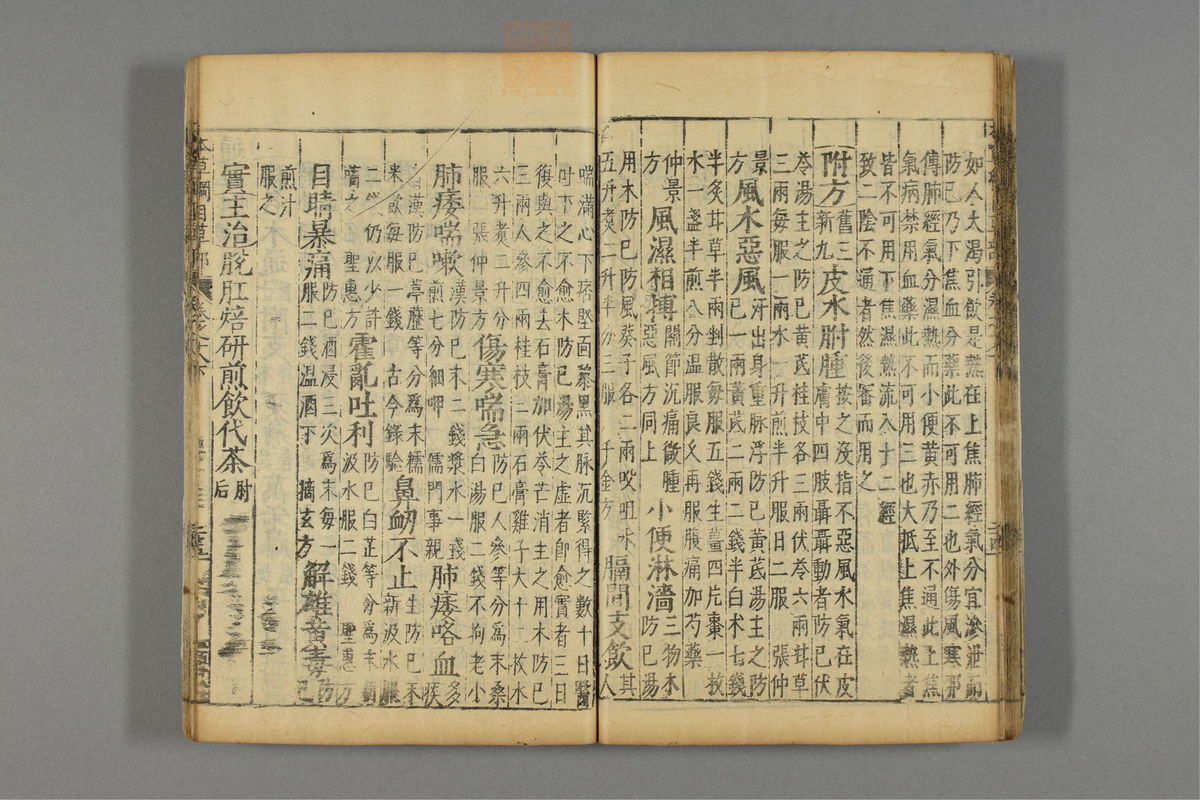 如人大渴引飲是熱在上焦肺經氣分宜滲泄而
防已乃下焦血分藥此不可用二也外傷風寒邪
傳肺經氣分濕熱而小便黄赤乃至不通此上焦
氣病禁用血藥此不可用三也大抵上焦濕熱者
皆不可用下焦濕熱流入十二經
致二陰不通者然後審而用之
附方 舊三新九 皮水胕腫 按之沒指不惡風水氣在皮
膚中四肢聶聶動者防已伏
苓湯主之防已黄芪桂枝各三兩伏苓六兩甘草
二兩每服一兩水一升煎半升服日二服 張仲
景方 風水惡風 汗出身重脉浮防已黄芪湯主之防
已一兩黄芪二兩二錢半白朮七錢
半炙甘草半兩剉散每服五錢生薑四片棗一枚
水一盞半煎八分温服良久再服腹痛加芍藥
仲景方 風濕相搏 關節沉痛微腫惡風方同上 小便淋濇 三物木防已湯
用木防已防風葵子各二兩㕮咀水
五升煮二升半分三服 千金方 膈間支飲 其人
喘滿心下痞堅面黧黑其脉沉緊得之數十日醫
吐下之不愈木防已湯主之虚者卽愈實者三日
復與之不愈去石膏加伏苓芒消主之用木防已
三兩人參四兩桂枝二兩石膏雞子大十二枚水
六升煮二升分服 張仲景方 傷寒喘急 防已人參等分爲末桑
白湯服二錢不拘老小
肺痿喘嗽 漢防已末二錢漿水一盞煎七分細呷 儒門事親 肺痿咯血 多痰
者漢防已葶藶等分爲末糯
米飲每服一錢 古今錄驗 鼻衂不止 生防已末新汲水服
二錢仍以少許㗜之 聖惠方 霍亂吐利 防已白芷等分爲末
新汲水服二錢 聖惠方
目睛暴痛 防已酒浸三次爲末每一服二錢温酒下 摘玄方 解雄黄毒 防已
煎汁服之
實主治脫肛焙研煎飲代茶 肘后
本草綱目草部